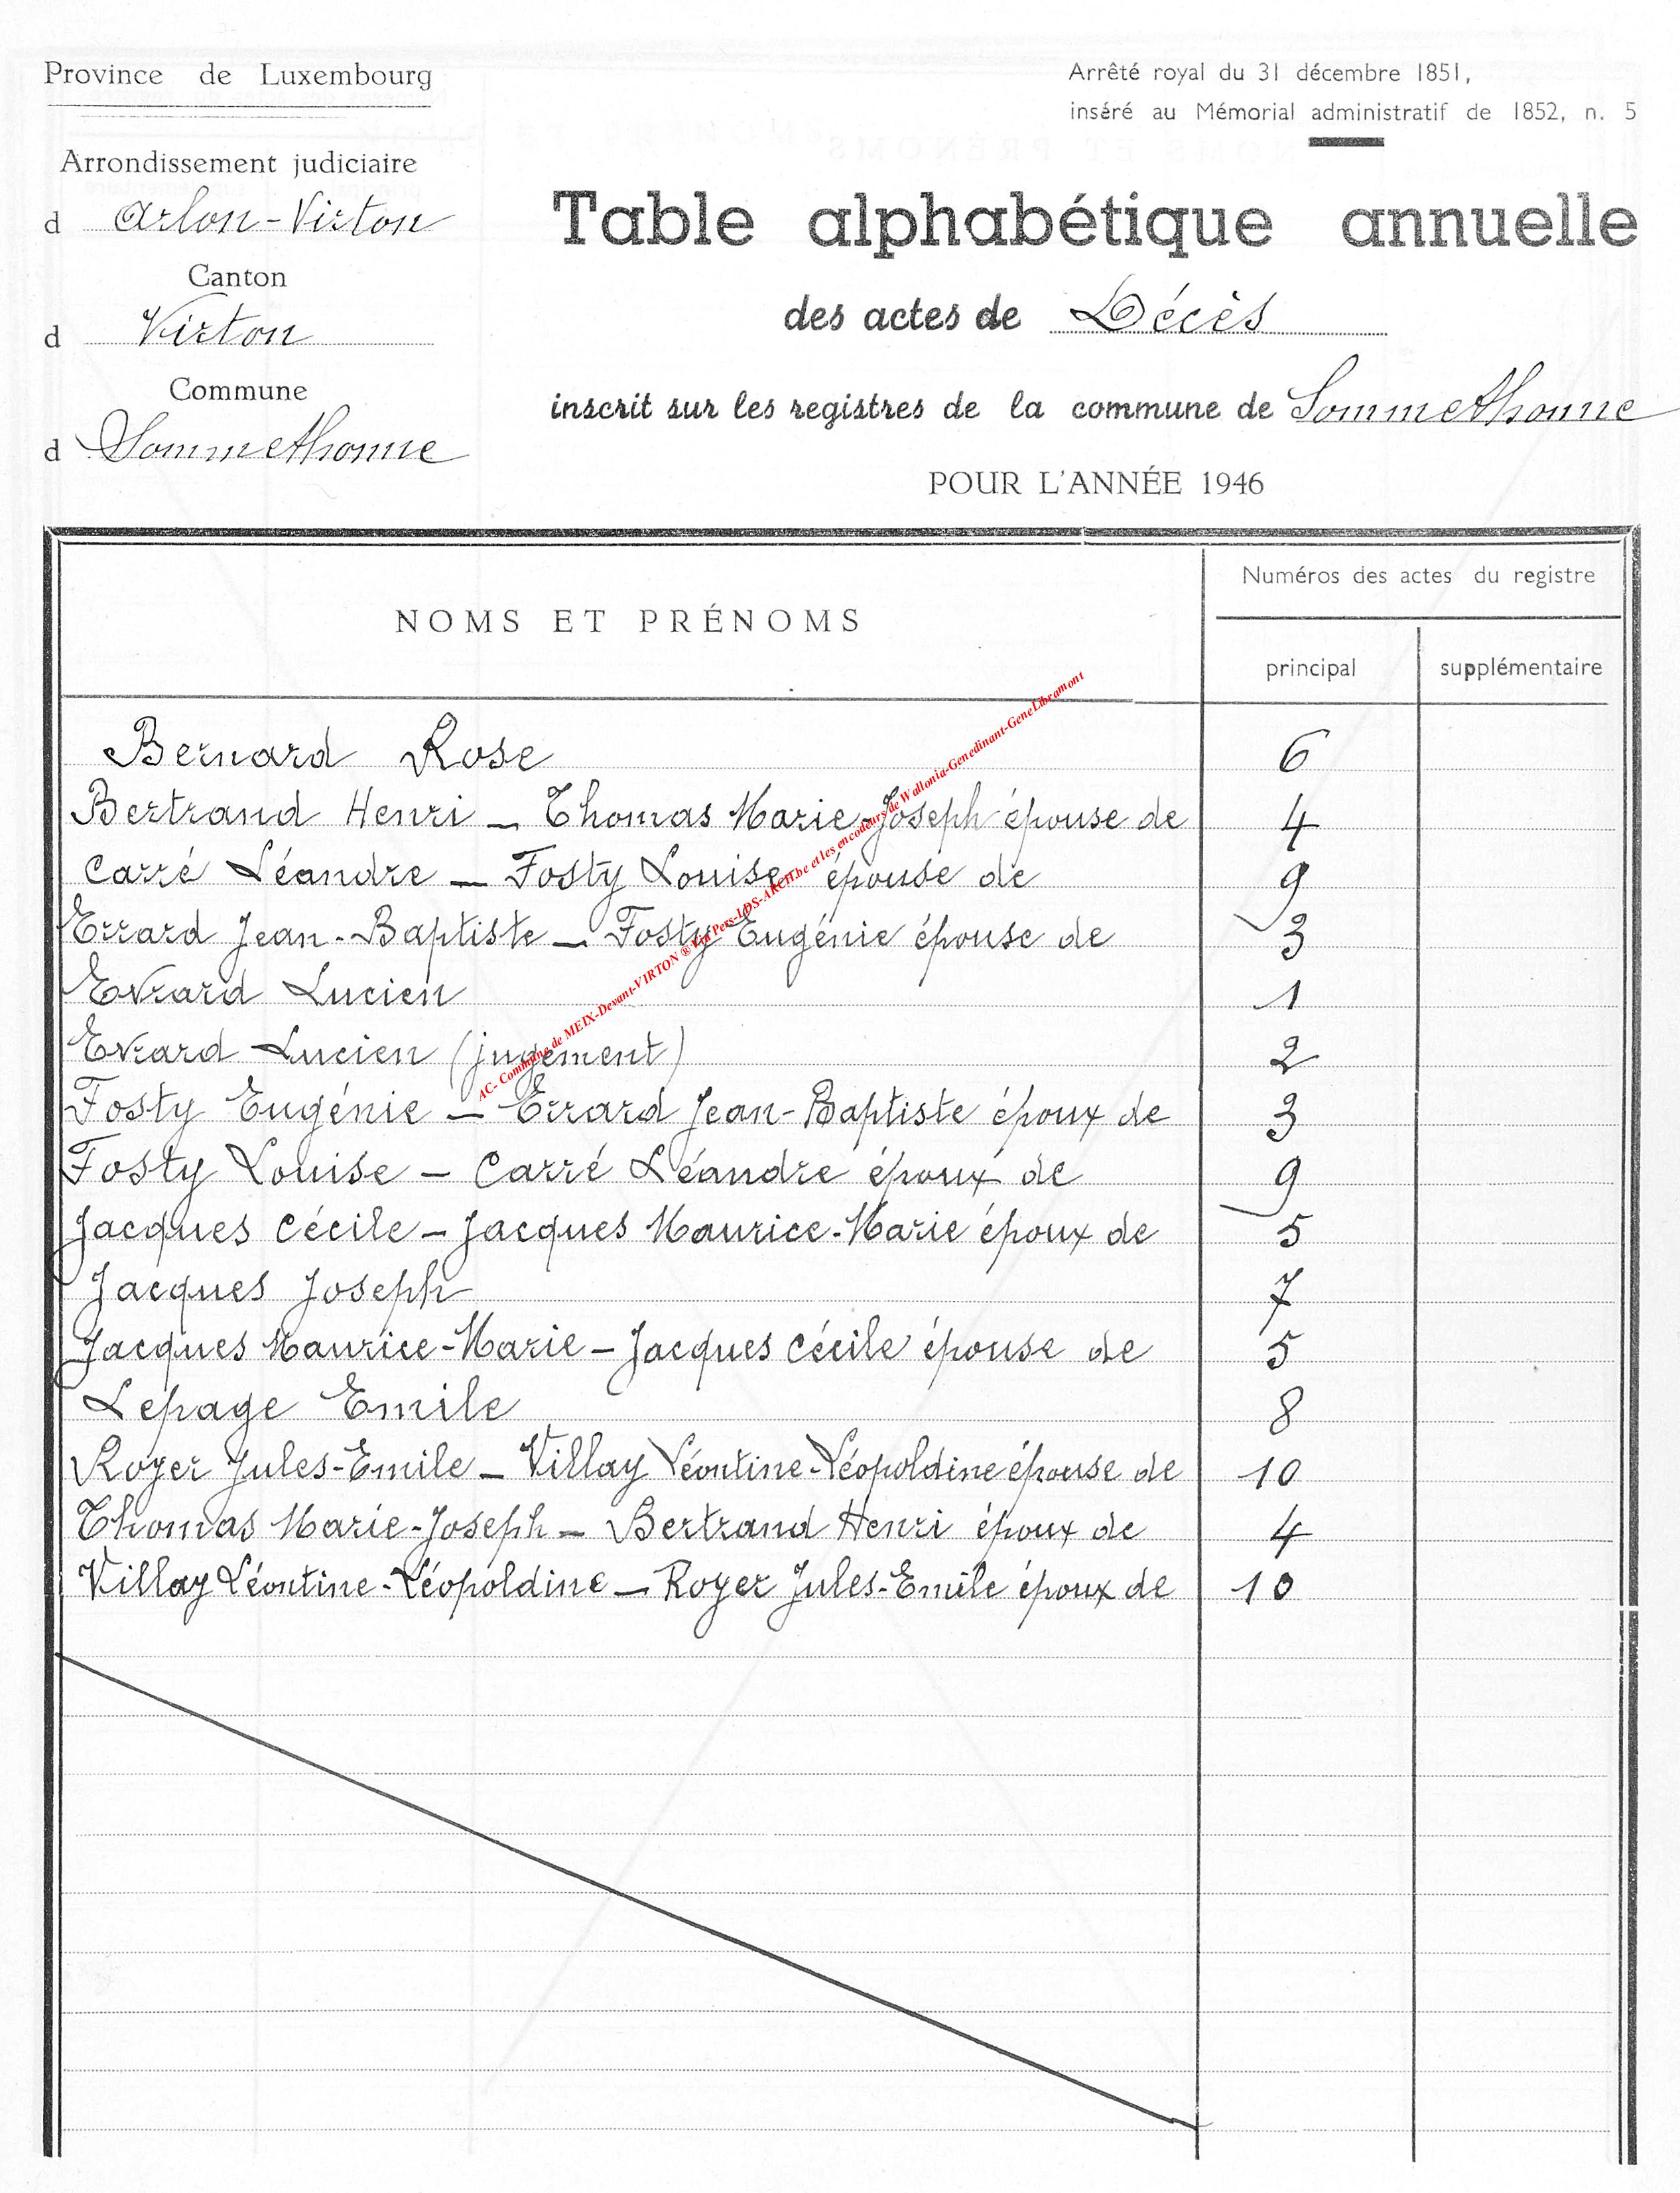 Province de Luxembourg
Arrondissement judiciaire
d Arlon-Virton
Canton
d Virton
Commune
d Sommethonne
Arrêté royal du 31 décembre 1851,
inséré au Mémorial administratif de 1852, n. 5
Table alphabétique annuelle
des actes de Décès
inscrit sur les registres de la commune de Sommethonne
POUR L'ANNÉE 1946
NOMS ET PRÉNOMS
Numéros des actes du registre
principal supplémentaire
Bernard Rose 6
Bertrand Henri — Thomas Marie-Joseph épouse de 4
Carré Léandre — Fosty Louise épouse de 9
Errard Jean-Baptiste — Fosty Eugénie épouse de 3
Evrard Lucien 1
Evrard Lucien (jugement) 2
Fosty Eugénie — Errard Jean-Baptiste époux de 3
Fosty Louise — Carré Léandre époux de 9
Jacques Cécile — Jacques Maurice-Marie époux de 5
Jacques Joseph 7
Jacques Maurice-Marie — Jacques Cécile épouse de 5
Lepage Emile 8
Royer Jules-Emile — Villay Léontine-Léopoldine épouse de 10
Thomas Marie-Joseph — Bertrand Henri époux de 4
Villay Léontine-Léopoldine — Royer Jules-Emile époux de 10
AC- Commune de MEIX-Devant-VIRTON ® Via Pers-LDS-ARCH.be et les encodeurs de Wallonia-Genedinant-GeneLibramont